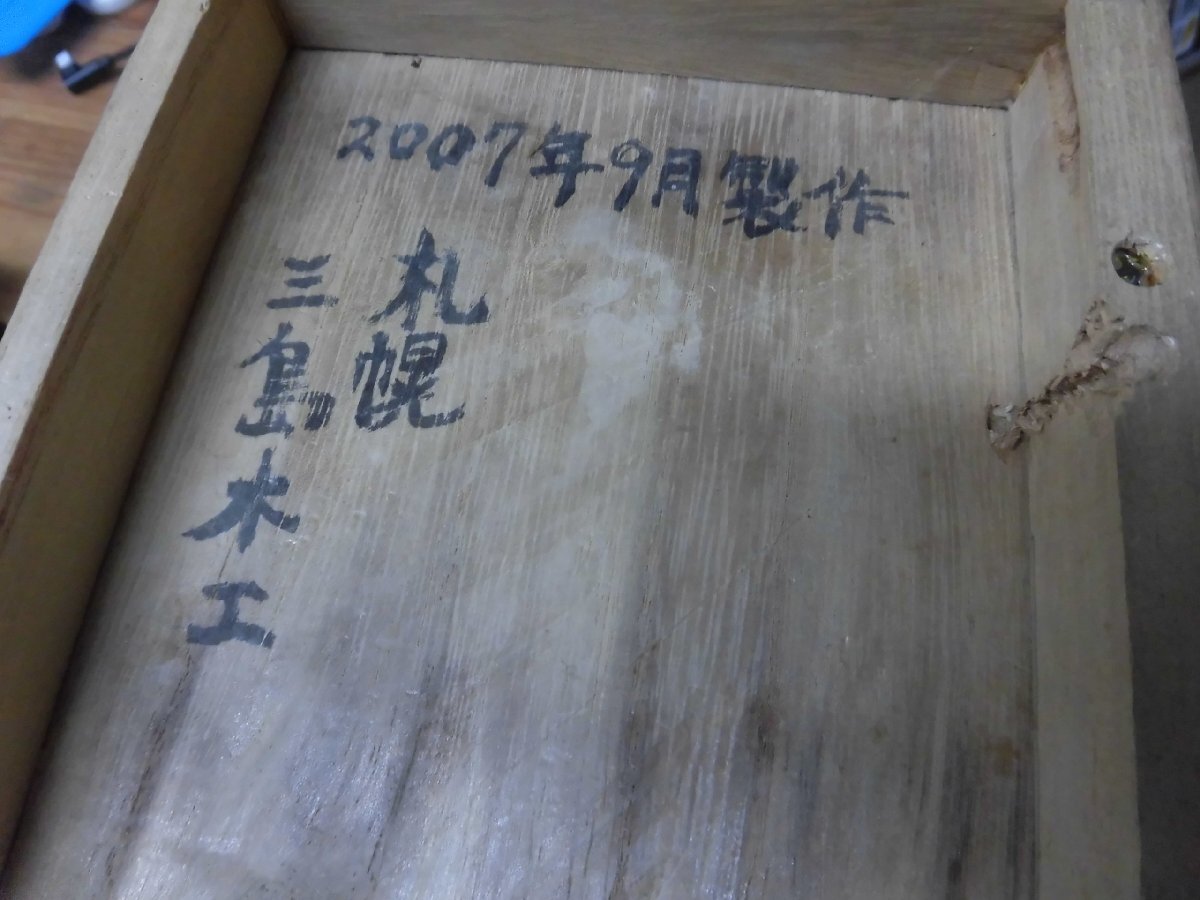 2007年9月製作
札幌
三島木工